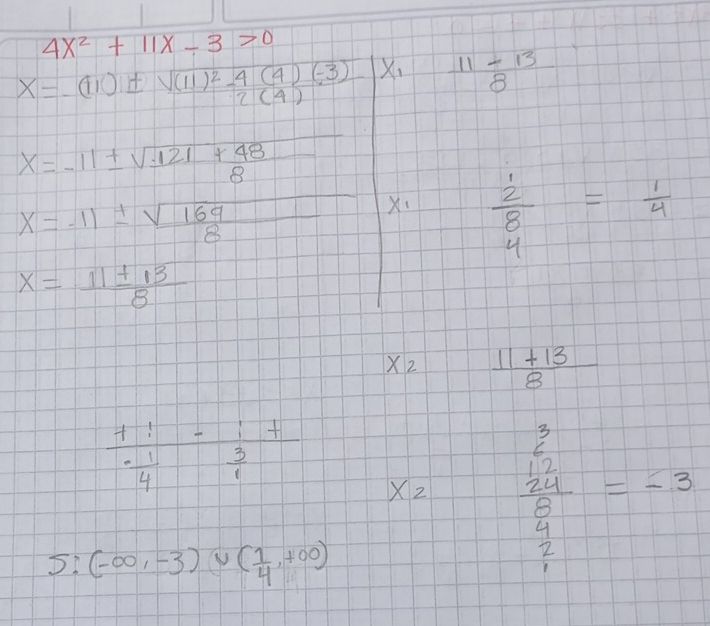 4x² + 11x - 3 > 0
x = -(11) ± √(11)² - 4(4)(-3) / 2(4)
x = -11 ± √121 + 48 / 8
x = -11 ± √169 / 8
x = 11 ± 13 / 8
x₁ 11 - 13 / 8
x₁ 1 2 / 8 4 = 1/4
x₂ 11 + 13 / 8
x₂ 3 6 12 24 / 8 4 2 1 = -3
+ - +
-1/4 3/1
S: (-∞, -3) ∪ (1/4, +∞)